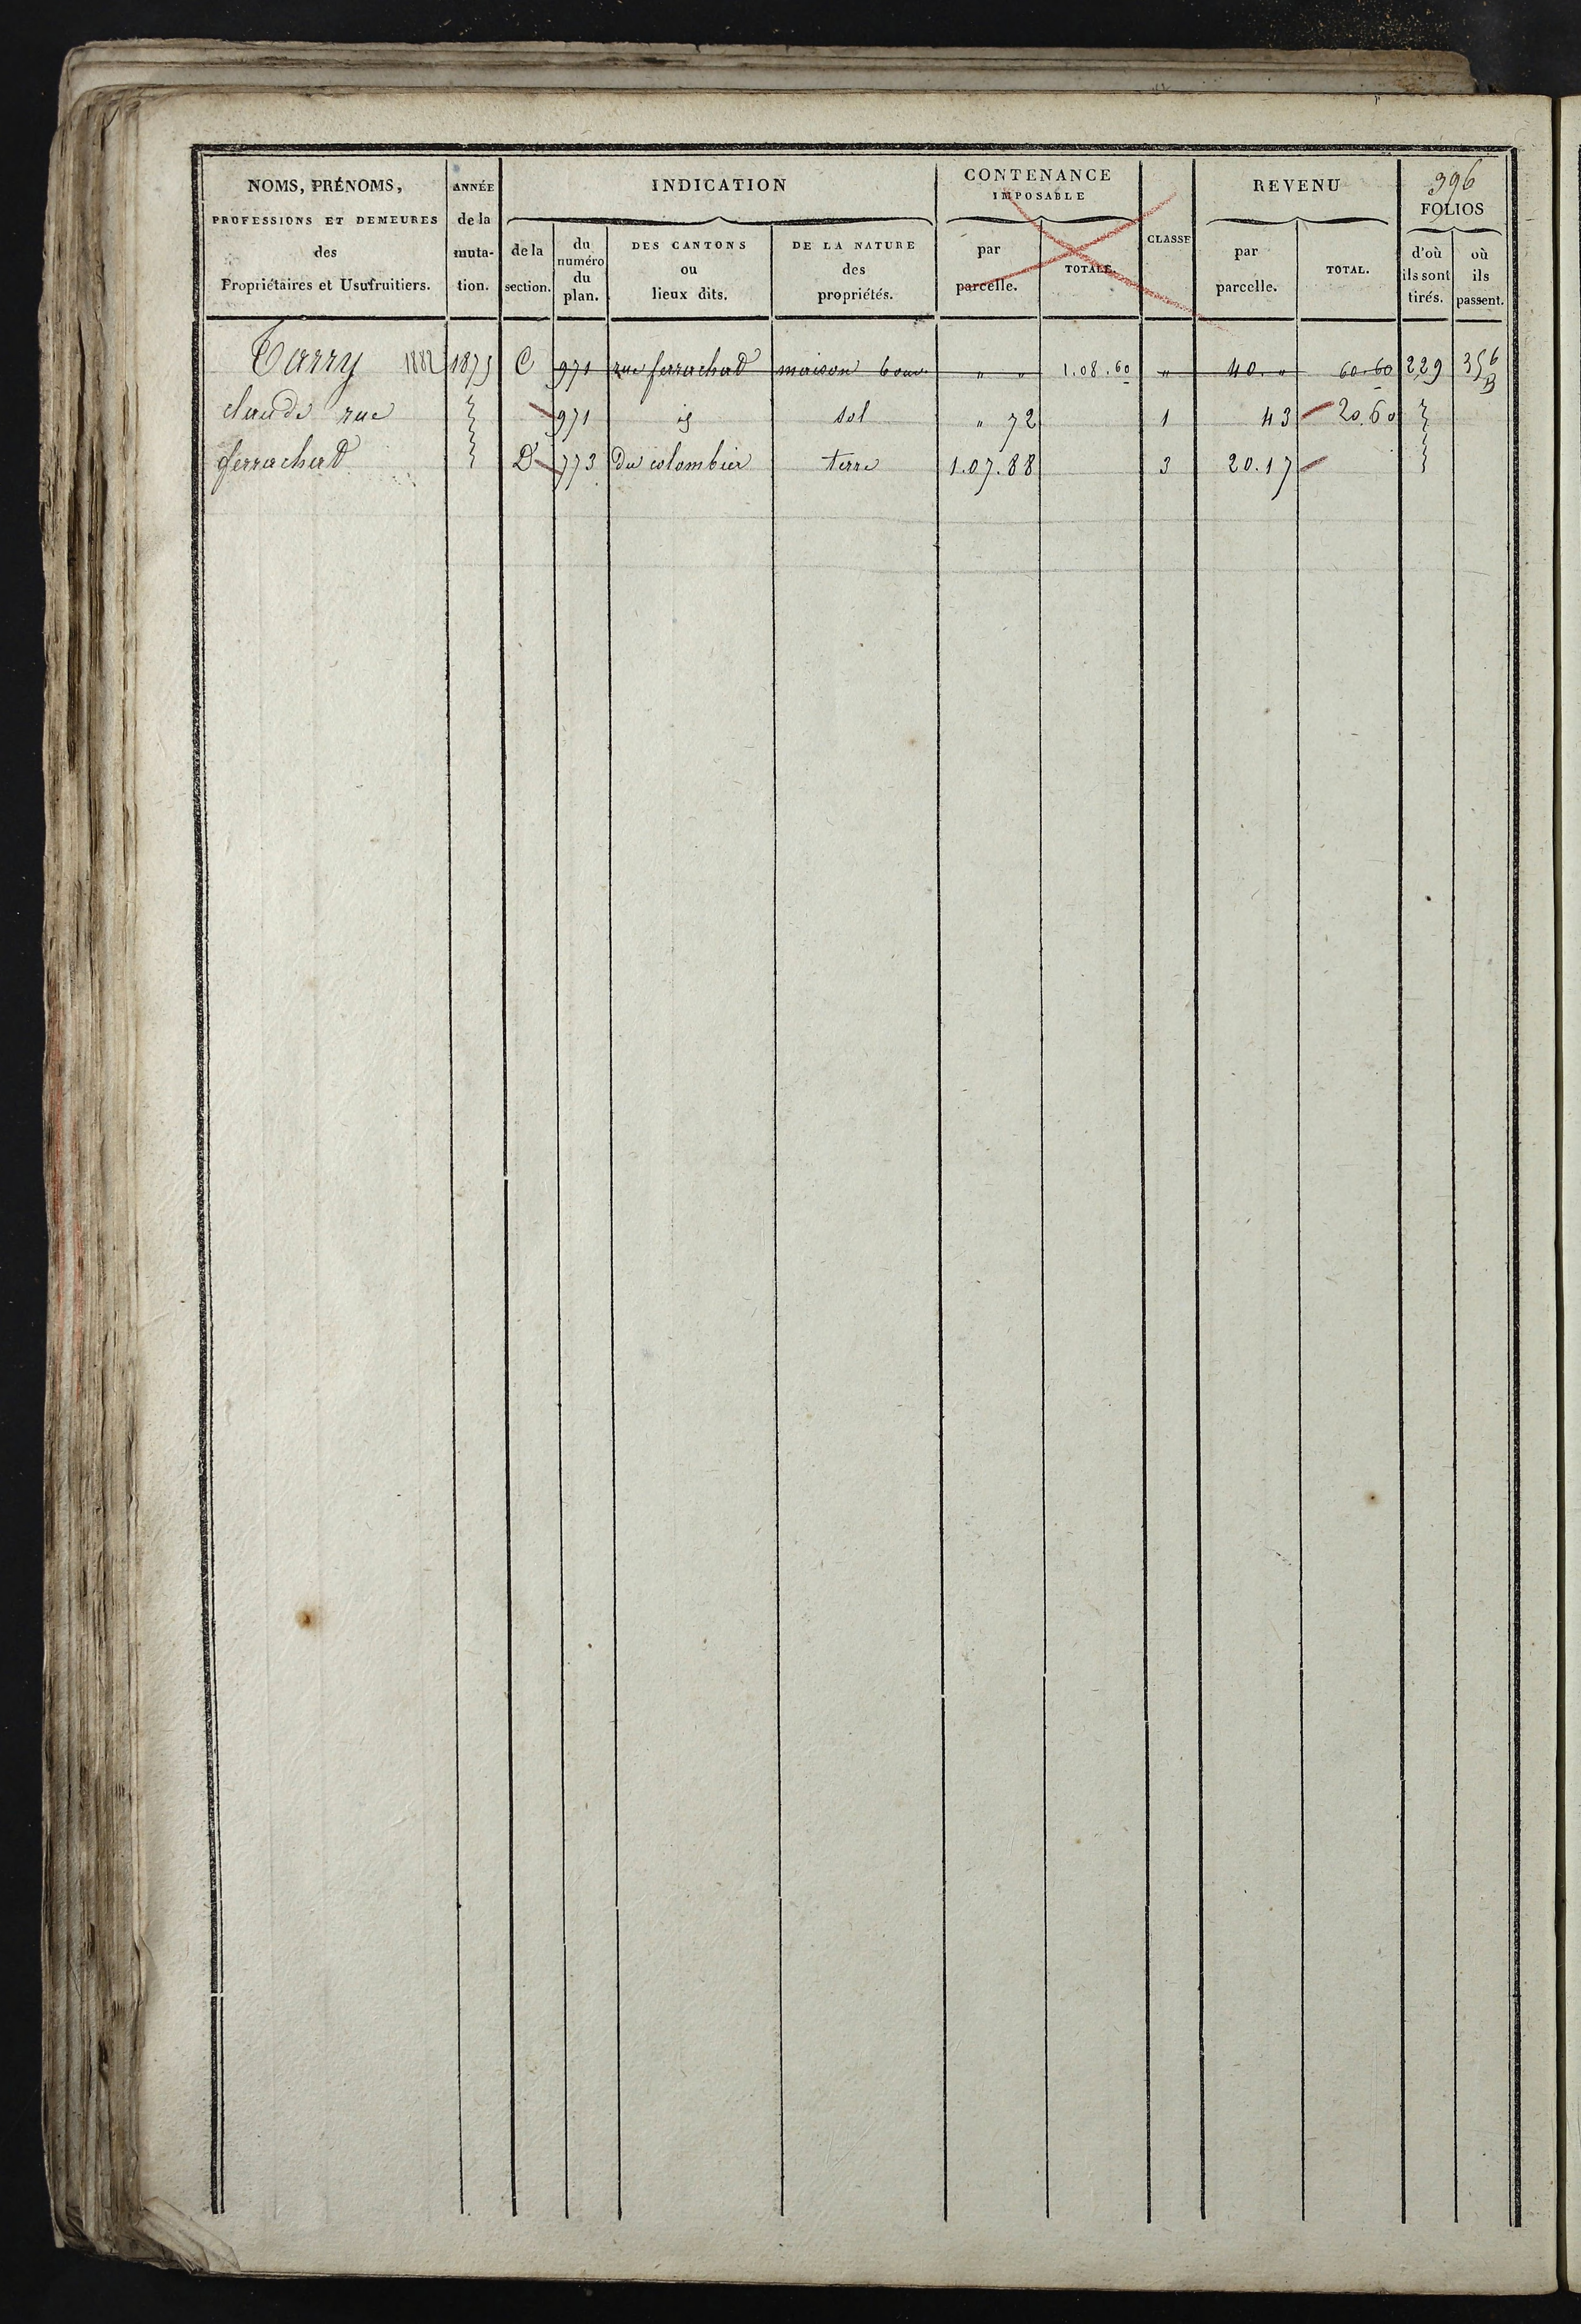 396
NOMS, PRÉNOMS,
PROFESSIONS ET DEMEURES
des
Propriétaires et Usufruitiers.
ANNÉE
de la
muta-
tion.
INDICATION
de la
section.
du
numéro
du
plan.
DES CANTONS
ou
lieux dits.
DE LA NATURE
des
propriétés.
CONTENANCE
IMPOSABLE
par
parcelle.
TOTALE.
CLASSE
REVENU
par
parcelle.
TOTAL.
FOLIOS
d'où
ils sont
tirés.
où
ils
passent.
Tarry 1882 1875 C 971 rue ferrachat maison " " 1.08.60 " 40. " 60.60 229 356
B
claude rue 971 id sol " 72 1 43 20.60
ferrachat D 773 Du colombier terre 1.07.88 3 20.17